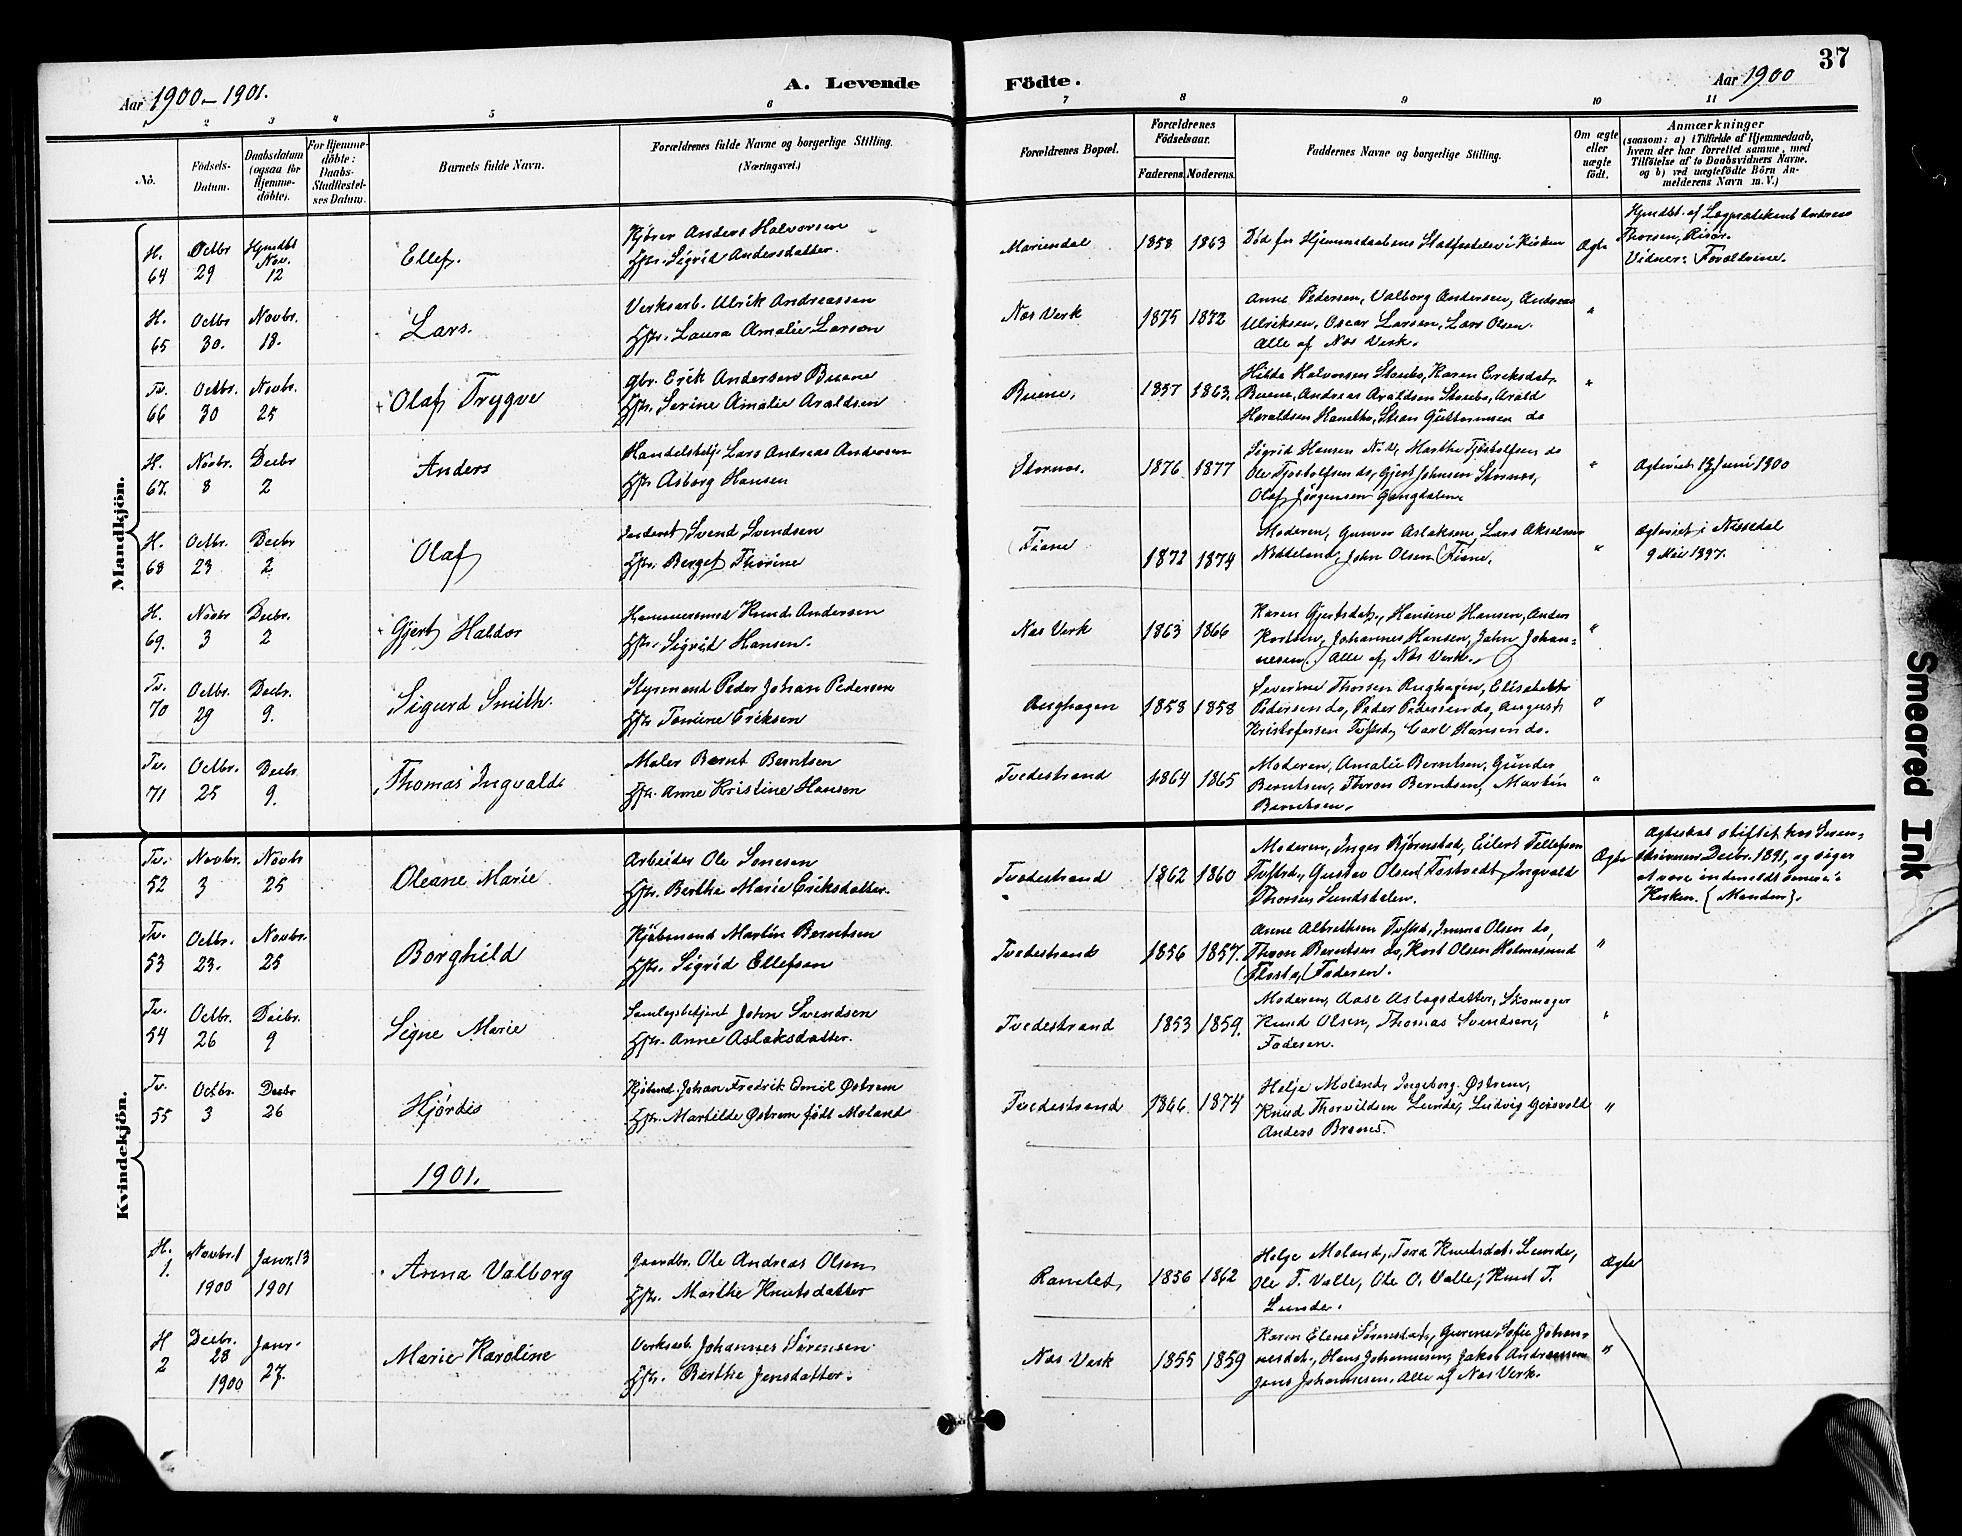 37
Aar 1900-1901.
A. Levende
Födte.
Aar 1900
1 2 3 4 5 6 7 8 9 10 11
No.
Födsels-Datum.
Daabsdatum (ogsaa för Hjemme-döbte).
For Hjemme-döbte: Daabs-Stadfæstel-ses Datum.
Barnets fulde Navn.
Forældrenes fulde Navne og borgerlige Stilling. (Næringsvei.)
Forældrenes Bopæl.
Forældrenes Födselsaar.
Faderens. Moderens.
Faddernes Navne og borgerlige Stilling.
Om ægte eller uægte födt.
Anmærkninger
(saasom: a) i Tilfælde af Hjemmedaab, hvem der har forrettet samme, med Tilföielse af to Daabsvidners Navne. og b) ved uægtefödte Börn An-melderens Navn m. V.)
Mandkjön.
H. 64 Octbr 29 Hjmdbt Nov. 12 Ellef.
Kjører Anders Halvorsen
Hstr. Sigrid Andersdatter.
Mariendal 1858 1863 Død før Hjemmedaabens Stadfæstelse i Kirken Ægte
Hjmdbt. af Lægprædikant Andreas
Thorsen, Risør.
Vidner: Forældrene.
H. 65 Octbr 30. Novbr. 18. Lars.
Verksarb. Ulrik Andreassen
Hstr. Laura Amalie Larsen
Næs Verk 1875 1872
Anne Pedersen, Valborg Andersen, Andreas
Ulriksen, Oscar Larsen, Lars Olsen.
Alle af Næs Verk. "
Tv. 66 Octbr. 30 Novbr. 25 Olaf Trygve
Gbr. Erik Andersen Buene
Hstr. Serine Amalie Araldsen
Buene, 1857 1863.
Hilda Halvorsen Staubo, Karen Eriksdat.
Buene, Andreas Araldsen Staubo, Arald
Haraldsen Hanetho, Stian Guttormsen do "
H. 67. Novbr. 8 Decbr 2 Anders
Handelsbetj. Lars Andreas Andersen
Hstr Asborg Hansen
Stornæs. 1876 1877
Sigrid Hansen N.V., Marthe Tjøstolfsen do
Ole Tjøstolfsen do, Gjert Johnsen Stornæs,
Olaf Jørgensen Gangdalen. "
Ægteviet 12 Juni 1900
H. 68 Octbr. 23 Decbr 2 Olaf
Inderst Svend Svendsen
Hstr. Berget Thorine
Fiane 1872 1874
Moderen, Gunvor Aslaksen, Lars Akselsen
Næddeland, John Olsen Fiane. "
Ægteviet i Nissedal
9 Mai 1897.
H. 69. Novbr 3 Decbr. 2 Gjert Haldor
Hammersmed Knud Andersen
Hstr. Sigrid Hansen.
Næs Verk 1863 1866
Karen Gjertsdat., Hansine Hansen, Anders
Knutsen, Johannes Hansen, John Johan-
nesen. Alle af Næs Verk. "
Tv. 70 Octbr. 29 Decbr. 9. Sigurd Smith.
Styrmand Peder Johan Pedersen
Hstr Tomine Eriksen
Rughagen 1858 1858
Severine Thorsen Rughagen, Elisabeth
Pedersen do, Peder Pedersen do, August
Kristofersen Tvstrd, Carl Hansen do. "
Tv. 71 Octbr. 25 Decbr. 9. Thomas Ingvald
Maler Bernt Berntsen
Hstr. Anne Kristine Hansen
Tvedestrand 1864 1865
Moderen, Amalie Berntsen, Gunder
Berntsen, Thron Berntsen, Martin
Berntsen. "
Kvindekjön.
Tv. 52 Novbr. 3 Novbr 25 Oleane Marie
Arbeider Ole Tønesen
Hstr. Berthe Marie Eriksdatter.
Tvedestrand 1862 1860
Moderen, Inger Bjørnstad, Eilert Tellefsen
Tvstrd., Gustav Olsen Tostvedt, Ingvald
Thorsen Lundsdalen. Ægte
Ægteskab stiftet hos Soren-
skriveren Decbr. 1891, og siger
at være indmeldt senere i
Kirken. (Manden).
Tv. 53 Octbr. 23. Novbr. 25 Borghild
Kjøbmand Martin Berntsen
Hstr. Sigrid Ellefsen
Tvedestrand 1856 1857.
Anne Albrethsen Tvstrd, Imma Olsen do,
Thron Berntsen do, Kort Olsen Holmesund
Flosta, Faderen. "
Tv. 54 Octbr. 26 Decbr. 9 Signe Marie
Samlagsbetjent John Svendsen
Hstr. Anne Aslaksdatter.
Tvedestrand 1853 1859.
Moderen, Aase Aslagsdatter, Skomager
Knud Olsen, Thomas Svendsen,
Faderen. "
Tv. 55 Octbr. 3 Decbr 26 Hjørdis
Kjøbmd. Johan Fredrik Emil Østrem
Hstr. Mathilde Østrem født Moland
Tvedestrand 1866. 1874
Helje Moland, Ingeborg Østrem,
Knud Thorvildsen Lunde, Ludvig Gjesvold
Anders Brænes. "
1901.
H. 1. Novbr. 1 1900 Janr. 13 1901 Anna Valborg
Gaardbr. Ole Andreas Olsen
Hstr. Marthe Knutsdatter
Ramlet, 1856 1862
Helge Moland, Tora Knutsdat. Lunde,
Ole T. Valle, Ole O. Valle, Knut T.
Lunde. Ægte
H 2 Decbr. 28 1900 Janr. 27. Marie Karoline
Verksarb. Johannes Sørensen
Hstr. Berthe Jensdatter.
Næs Verk 1855 1859
Karen Elene Sørensdat., Gurine Sofie Johan-
nesdat., Hans Johannesen, Jakob Andreassen
Jens Johannesen. Alle af Næs Verk. "
Smeared Ink